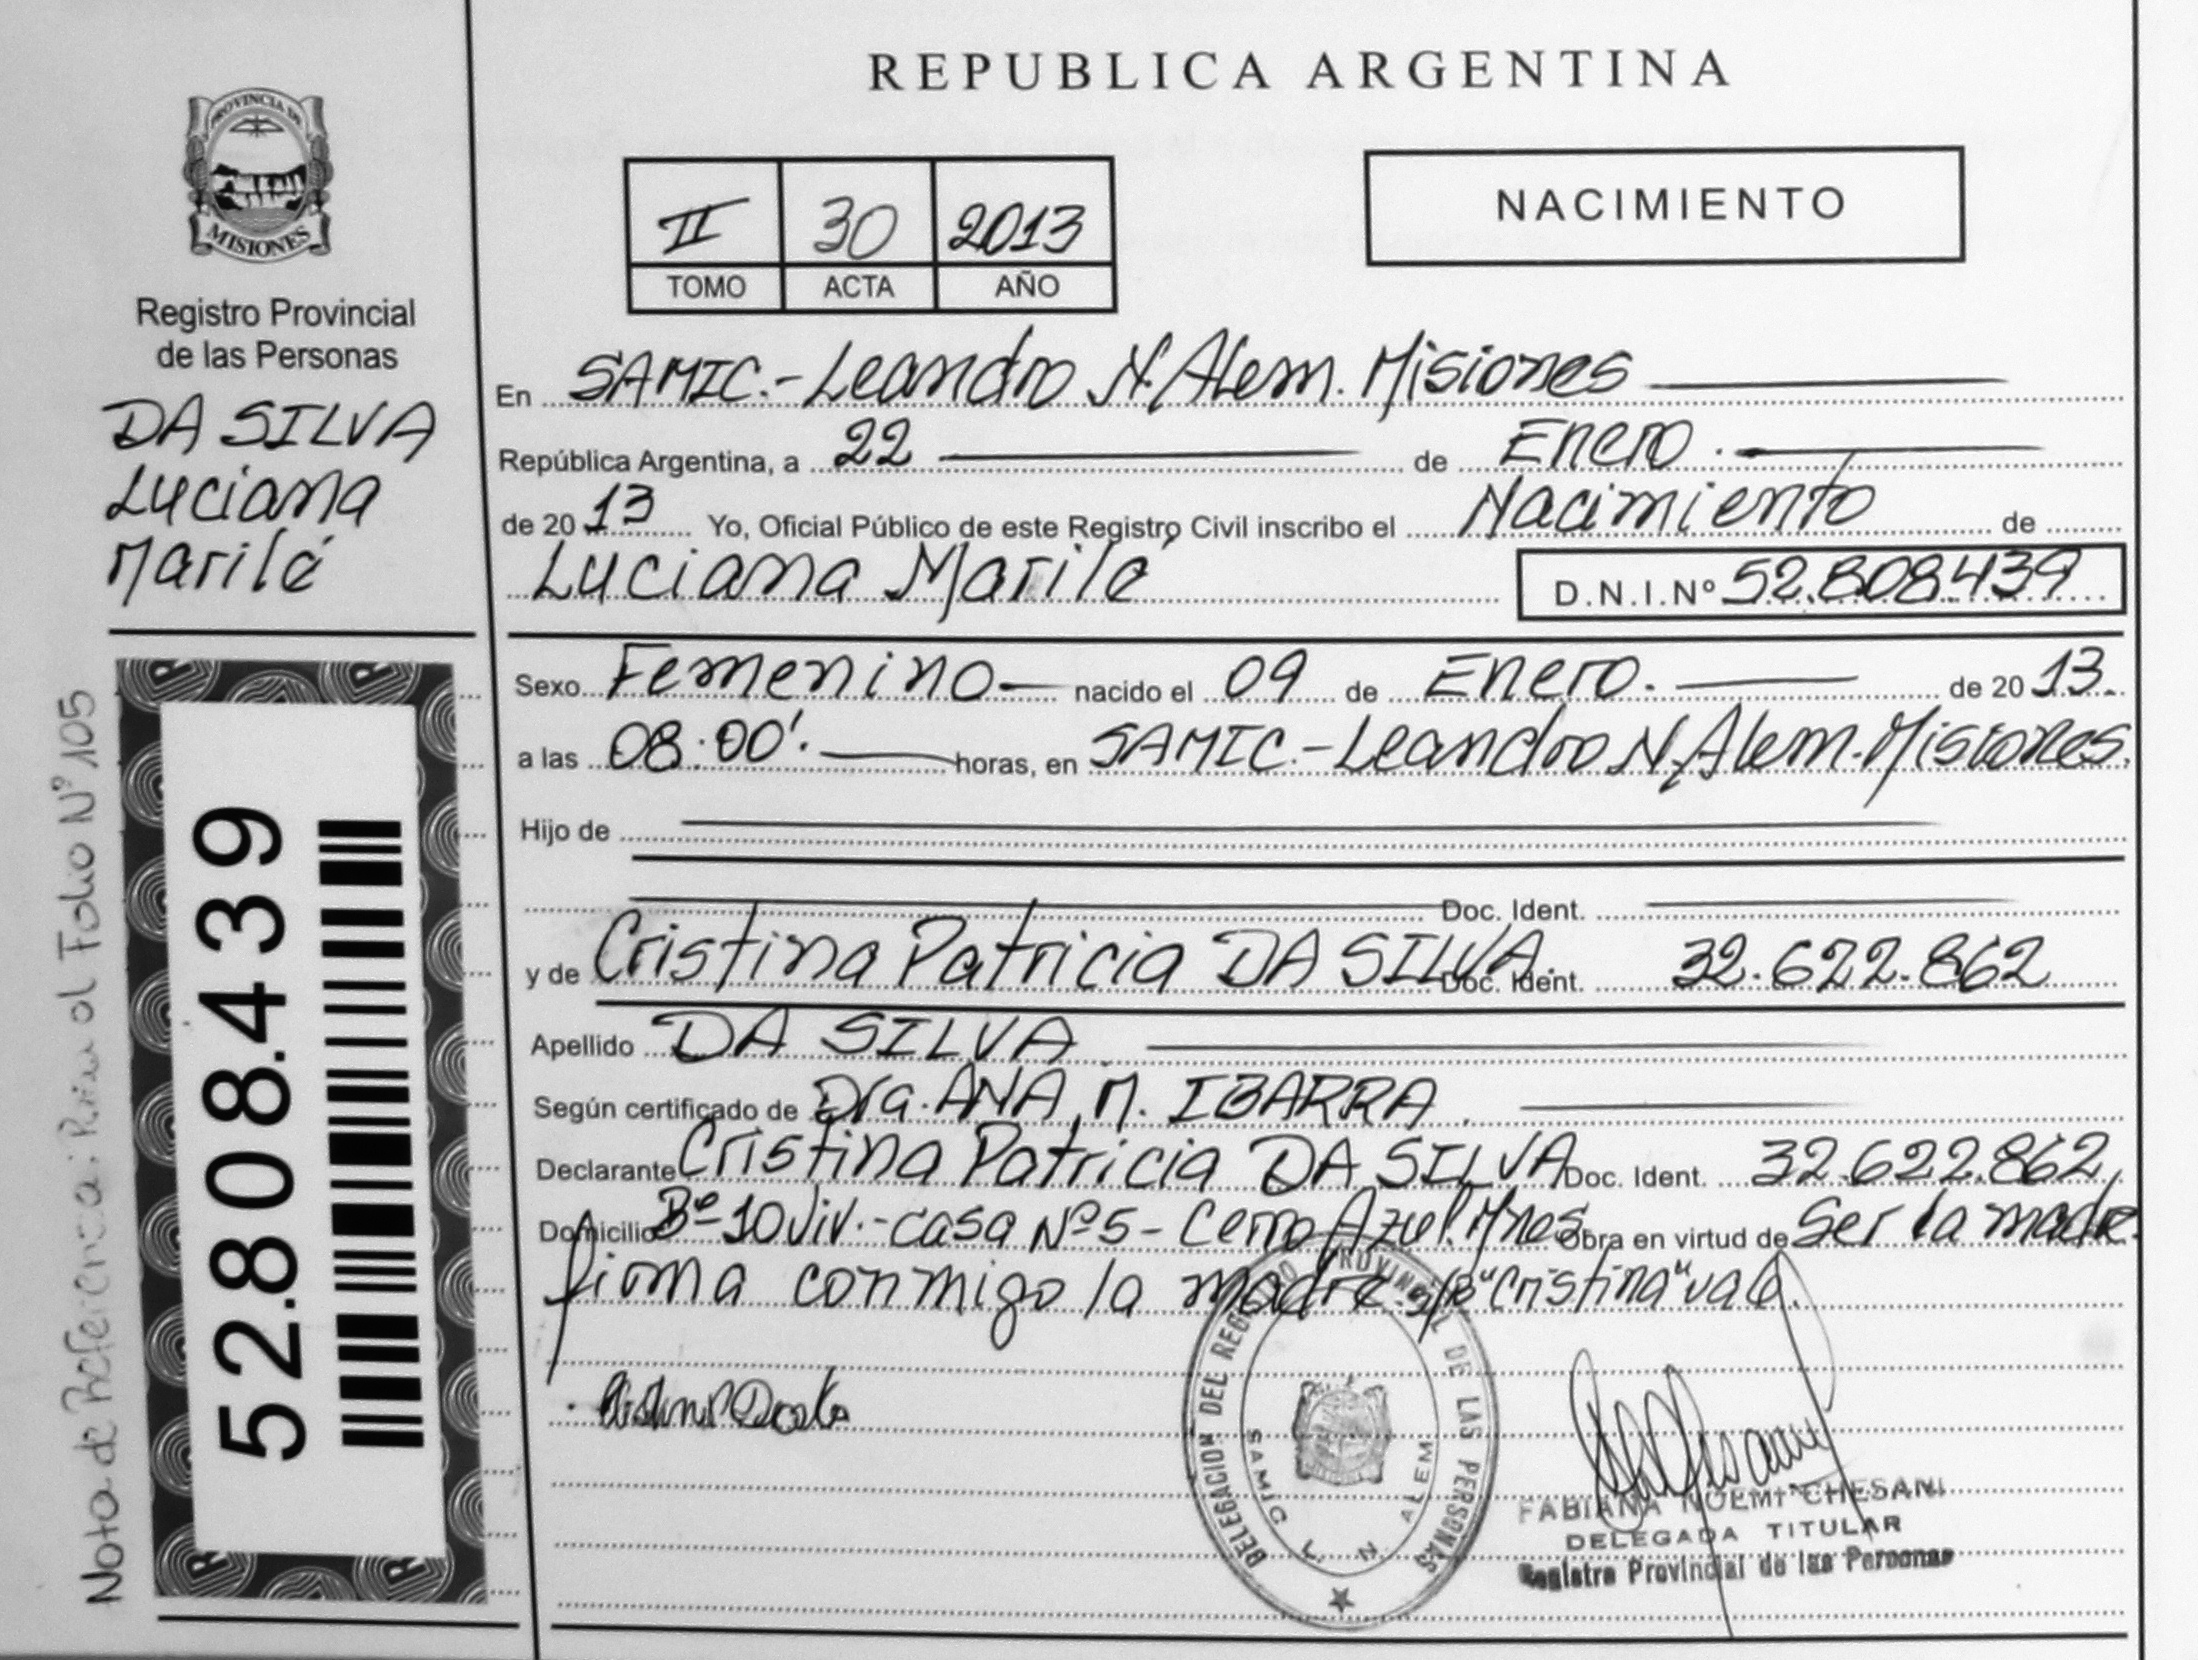 REPUBLICA ARGENTINA
PROVINCIA DE
MISIONES
Registro Provincial
de las Personas
DA SILVA
Luciana
Marilé
II 30 2013
TOMO ACTA AÑO
NACIMIENTO
En SAMIC.- Leandro N. Alem. Misiones
República Argentina, a 22 de Enero.
de 2013 Yo, Oficial Público de este Registro Civil inscribo el Nacimiento de
Luciana Marilé D.N.I.Nº 52.808.439
Sexo Femenino nacido el 09 de Enero. de 2013.
a las 08:00'. horas, en SAMIC.- Leandro N. Alem. Misiones.
Hijo de
Doc. Ident.
y de Cristina Patricia DA SILVA. Doc. Ident. 32.622.862
Apellido DA SILVA
Según certificado de Dra. ANA M. IBARRA
Declarante Cristina Patricia DA SILVA Doc. Ident. 32.622.862,
Domicilio Bº 10 Viv.- casa Nº 5 - Cerro Azul. Mnes Obra en virtud de Ser la madre.
firma conmigo la madre. s/r "Cristina" vale.
52.808.439
Nota de Referencia: al Folio Nº 105
DELEGACION DEL REGISTRO PROVINCIAL DE LAS PERSONAS
SAMIC L. N. ALEM
FABIANA NOEMI CHESANI
DELEGADA TITULAR
Registro Provincial de las Personas